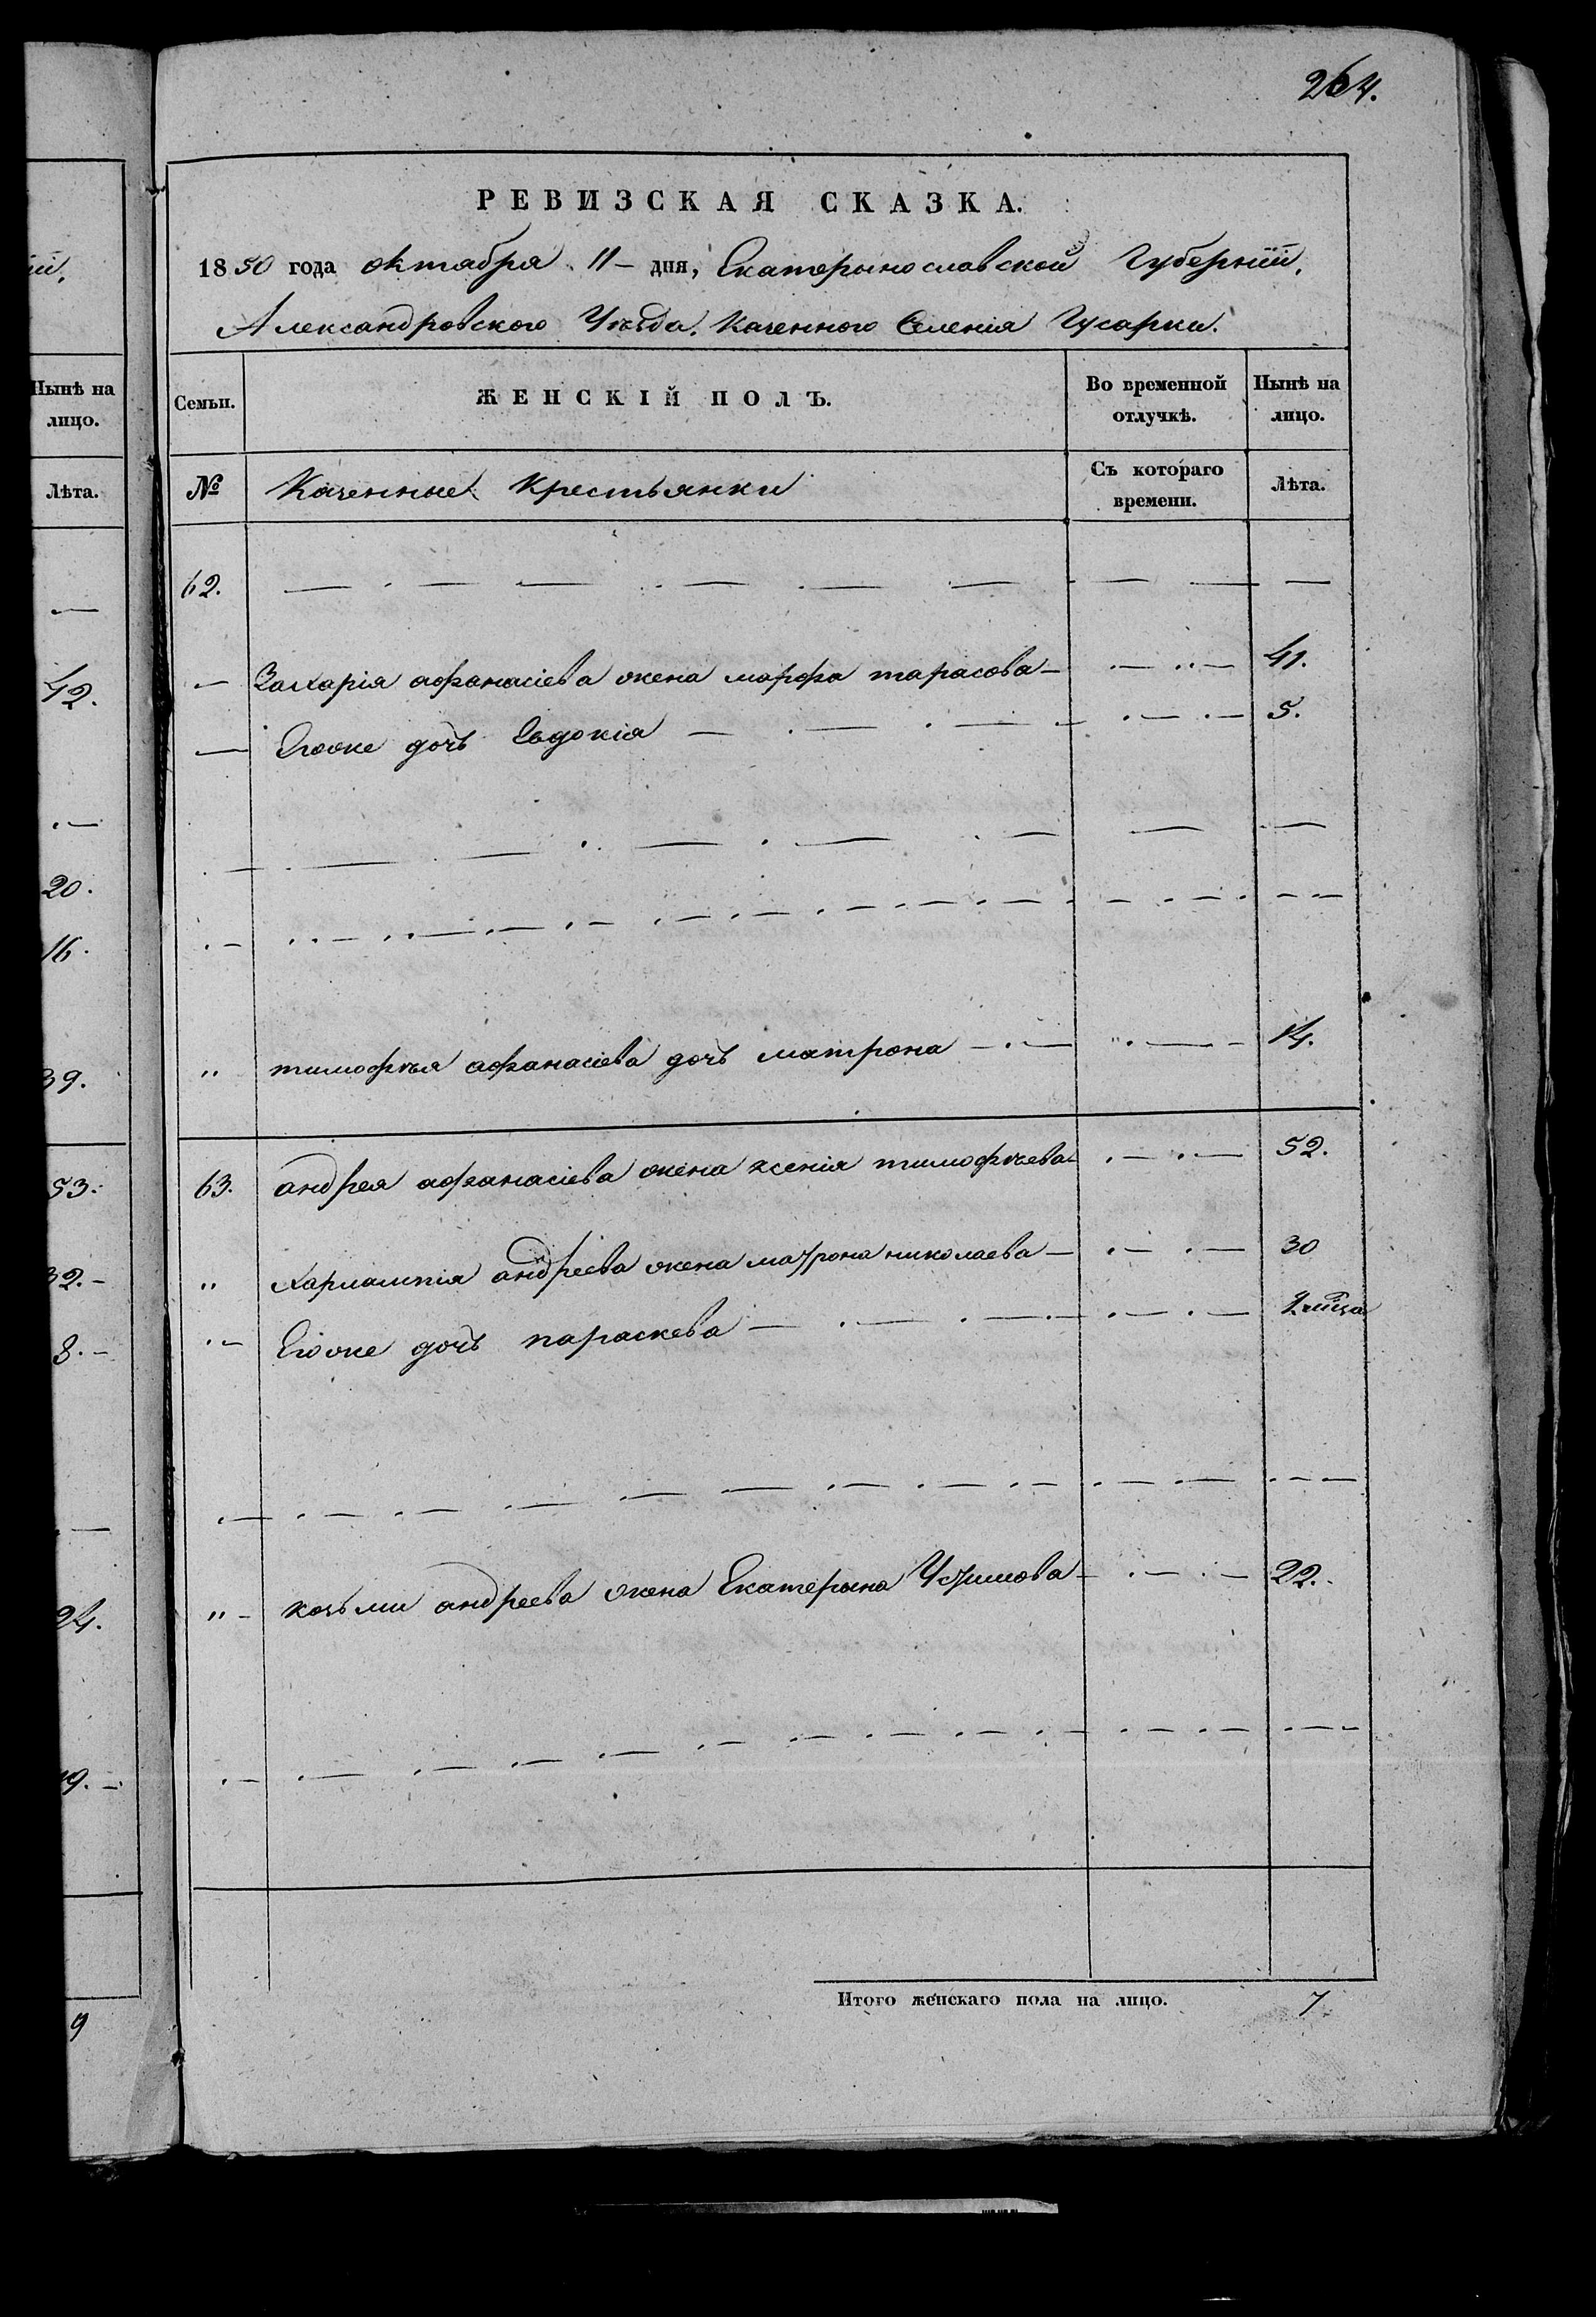 264.
РЕВИЗСКАЯ СКАЗКА.
1850 года октабря 11 - дня, Екатерынославской Губерніи,
Александровского Уезда. Казенного Селенія Гусарки.
Семьи. ЖЕНСКІЙ ПОЛЪ. Во временной отлучкѣ. Нынѣ на лицо.
№ Казенные Крестьянки Съ котораго времени. Лѣта.
62. — — — — — —
— Захарія афанасіева жена марфа тарасова — — 41.
— Егоже дочь Евдокія — — 5.
" тимофѣя афанасіева дочь матрона — — 14.
63. андрея афанасіева жена ксенія тимофѣева — 52.
" Харлампія андреева жена матрона николаева — — 30
Егоже дочь параскева — —
" - козьми андреева жена Екатерына Устимова — — 22.
Итого женскаго пола на лицо. 7
Нынѣ на
лицо.
Лѣта.
42.
20.
16.
39.
53.
32. -
8. -
24.
9